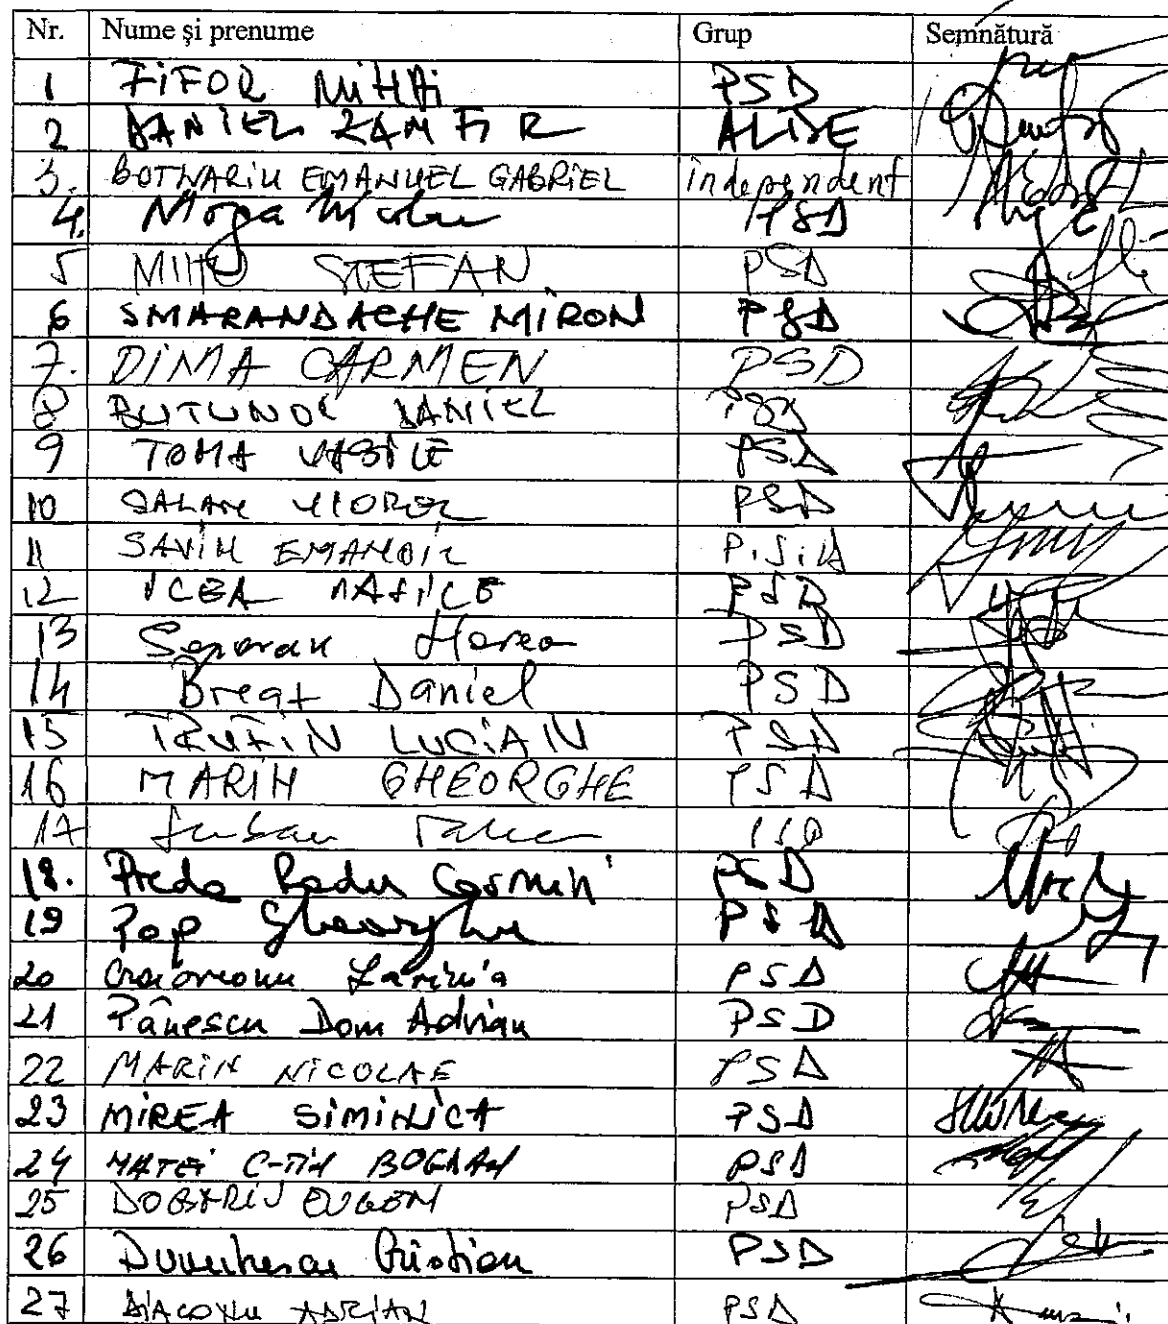 Nr. Nume și prenume Grup Semnătură
1 FIFOR MiHAi PSD
2 DANIEL ZAMFIR ALDE
3. BOTNARIU EMANUEL GABRIEL independent
4. Mopa Nicolae PSD
5 MIHU STEFAN PSD
6 SMARANDACHE MIRON PSD
7. DiMA CARMEN PSD
8 BUTUNOI DANIEL PSD
9 TOMA VASILE PSD
10 SALAN VIOREL PSD
11 SAVIN EMANOIL P.S.D
12 VASILE PSD
13 PSD
14 Breaz Daniel PSD
15 TRUFiN LUCiAN PSD
16 MARIN GHEORGHE PSD
17 PSD
18. Preda Radu Cosmin PSD
19 Pop Gheorghe PSD
20 Craioveanu PSD
21 Pănescu Dom Adrian PSD
22 MARiN NiCOLAE PSD
23 MiREA SIMINICA PSD
24 MATEi C-TIN BOGDAN PSD
25 EUGEN PSD
26 Cristian PSD
27 DiACONU ADRiAN PSD